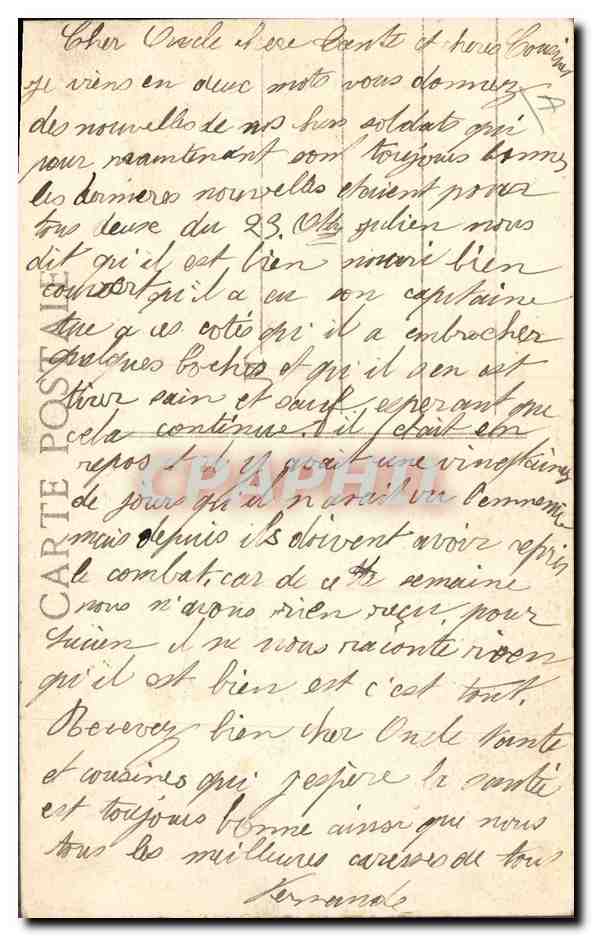 Cher Oncle chere Tante et cheres Cousines
je viens en deux mots vous donnez
des nouvelles de nos chers soldats qui
pour maintenant sont toujours bonnes
les dernieres nouvelles etaient pour
tous deux du 23. Obre Julien nous
dit qu'il est bien nourri bien
couvert qu'il a eu son capitaine
tue a ces cotés qu'il a embrocher
quelques boches et qu'il s'en est
tirer sain et sauf esperant que
cela continue. il etait en
repos et il y avait une vingtaines
de jours qu'il n'avait vu l'ennemie
mais depuis ils doivent avoir repris
le combat, car de cette semaine
nous n'avons rien reçu. pour
Lucien il ne nous raconte rien
qu'il est bien est c'est tout.
Recevez bien cher Oncle tante
et cousines qui j'espère la santée
est toujours bonne ainsi que nous
tous les meilleures caresses de tous
Fernande
CARTE POSTALE
CPAPHIL